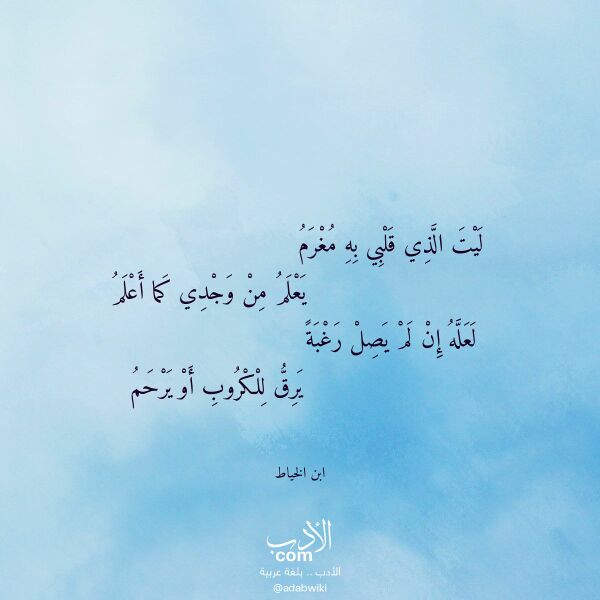 لَيْتَ الَّذِي قَلْبِي بِهِ مُغْرَمُ
يَعْلَمُ مِنْ وَجْدِي كَمَا أَعْلَمُ
لَعَلَّهُ إِنْ لَمْ يَصِلْ رَغْبَةً
يَرِقُّ لِلْكْرُوبِ أَوْ يَرْحَمُ
ابن الخياط
الأدب
com
الأدب .. بلغة عربية
@adabwiki